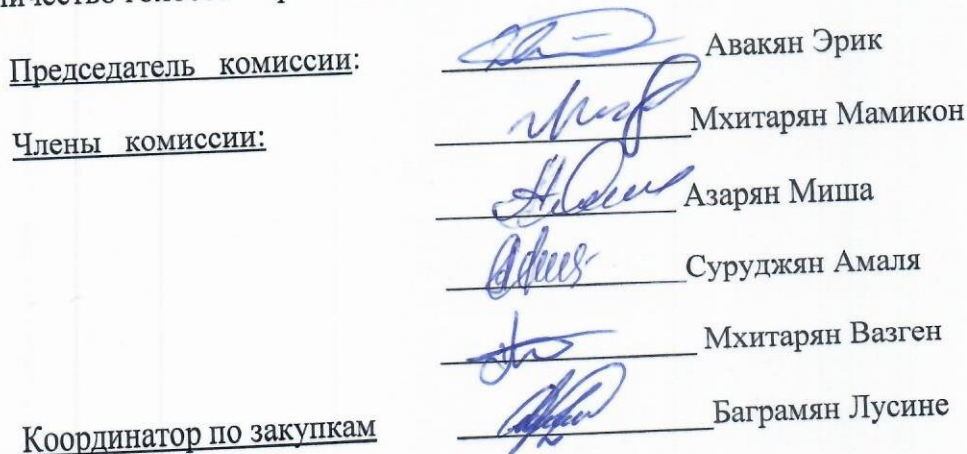 Председатель комиссии: Авакян Эрик
Члены комиссии: Мхитарян Мамикон
Азарян Миша
Суруджян Амаля
Мхитарян Вазген
Координатор по закупкам Баграмян Лусине